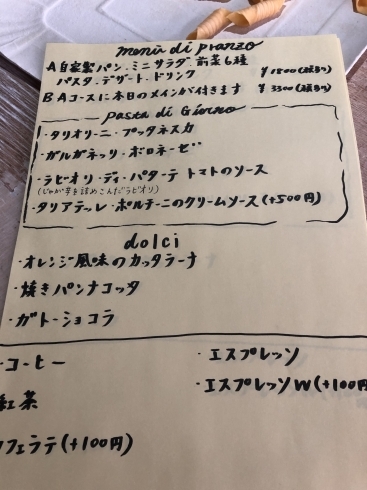 menù di pranzo
A 自家製パン・ミニサラダ・前菜6種
パスタ・デザート・ドリンク ¥1800(税込)
B Aコースに本日のメインが付きます ¥3300(税込)
pasta di Giorno
・タリオリーニ・プッタネスカ
・ガルガネッリ・ボロネーゼ
・ラビオリ・ディ・パターテ トマトのソース
(じゃが芋を詰めこんだラビオリ)
・タリアテッレ・ポルチーニのクリームソース(+500円)
dolci
・オレンジ風味のカッタラーナ
・焼きパンナコッタ
・ガトーショコラ
・コーヒー
・エスプレッソ
紅茶
・エスプレッソW(+100円
フェラテ(+100円)